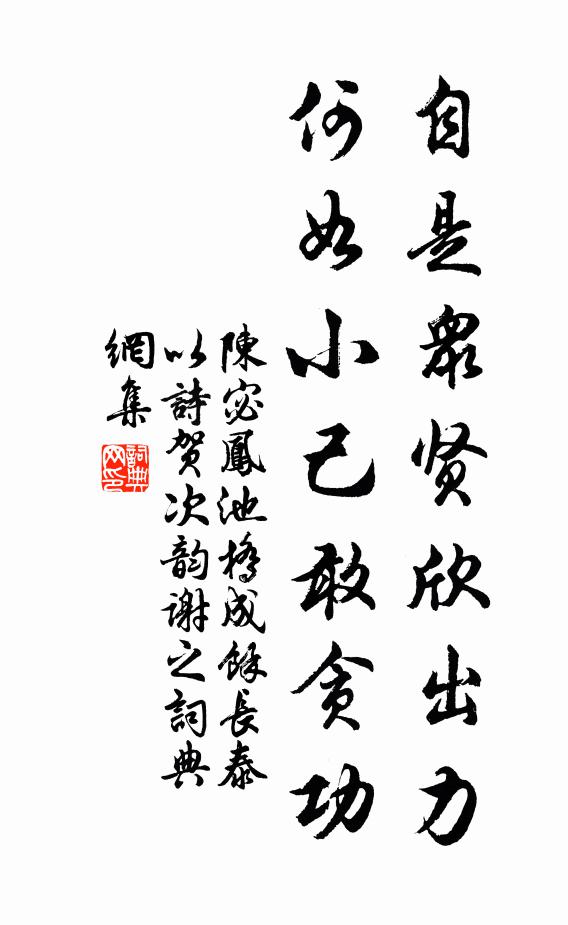 自是眾贤欣出力
何如小己敢貪功
陳宓鳳池橋成餘長泰
以詩贺次韵谢之詞典
網集
詞典
网印